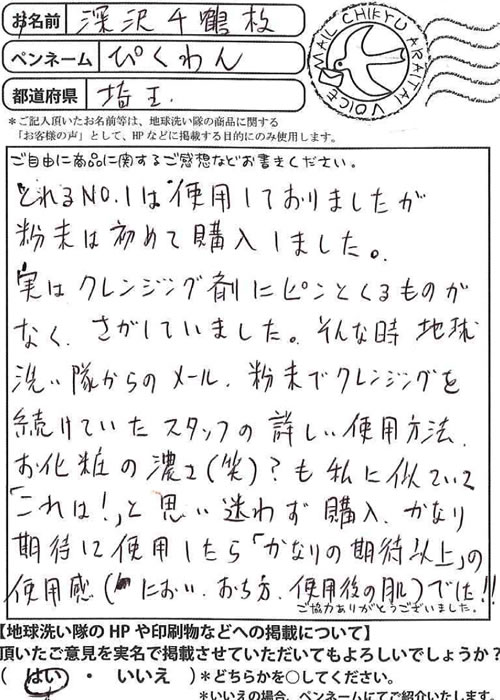 お名前 深沢千鶴枝
ペンネーム ぴくわん
都道府県 埼玉.
MAIL CHIKYU ARAITAI VOICE
＊ご記入頂いたお名前等は、地球洗い隊の商品に関する
「お客様の声」として、HPなどに掲載する目的にのみ使用します。
ご自由に商品に関するご感想などお書きください。
とれるNO.1は使用しておりましたが
粉末は初めて購入しました。
実はクレンジング剤にピンとくるものが
なく、さがしていました。そんな時 地球
洗い隊からのメール、粉末でクレンジングを
続けていたスタッフの詳しい使用方法、
お化粧の濃さ(笑)?も私に似ていて
「これは!」と思い迷わず購入、かなり
期待して使用したら「かなりの期待以上」の
使用感(におい、おち方、使用後の肌)でした!!
ご協力ありがとうございました。
【地球洗い隊のHPや印刷物などへの掲載について】
頂いたご意見を実名で掲載させていただいてもよろしいでしょうか?
( はい ・ いいえ )＊どちらかを○してください。
＊いいえの場合、ペンネームにてご紹介いたします。